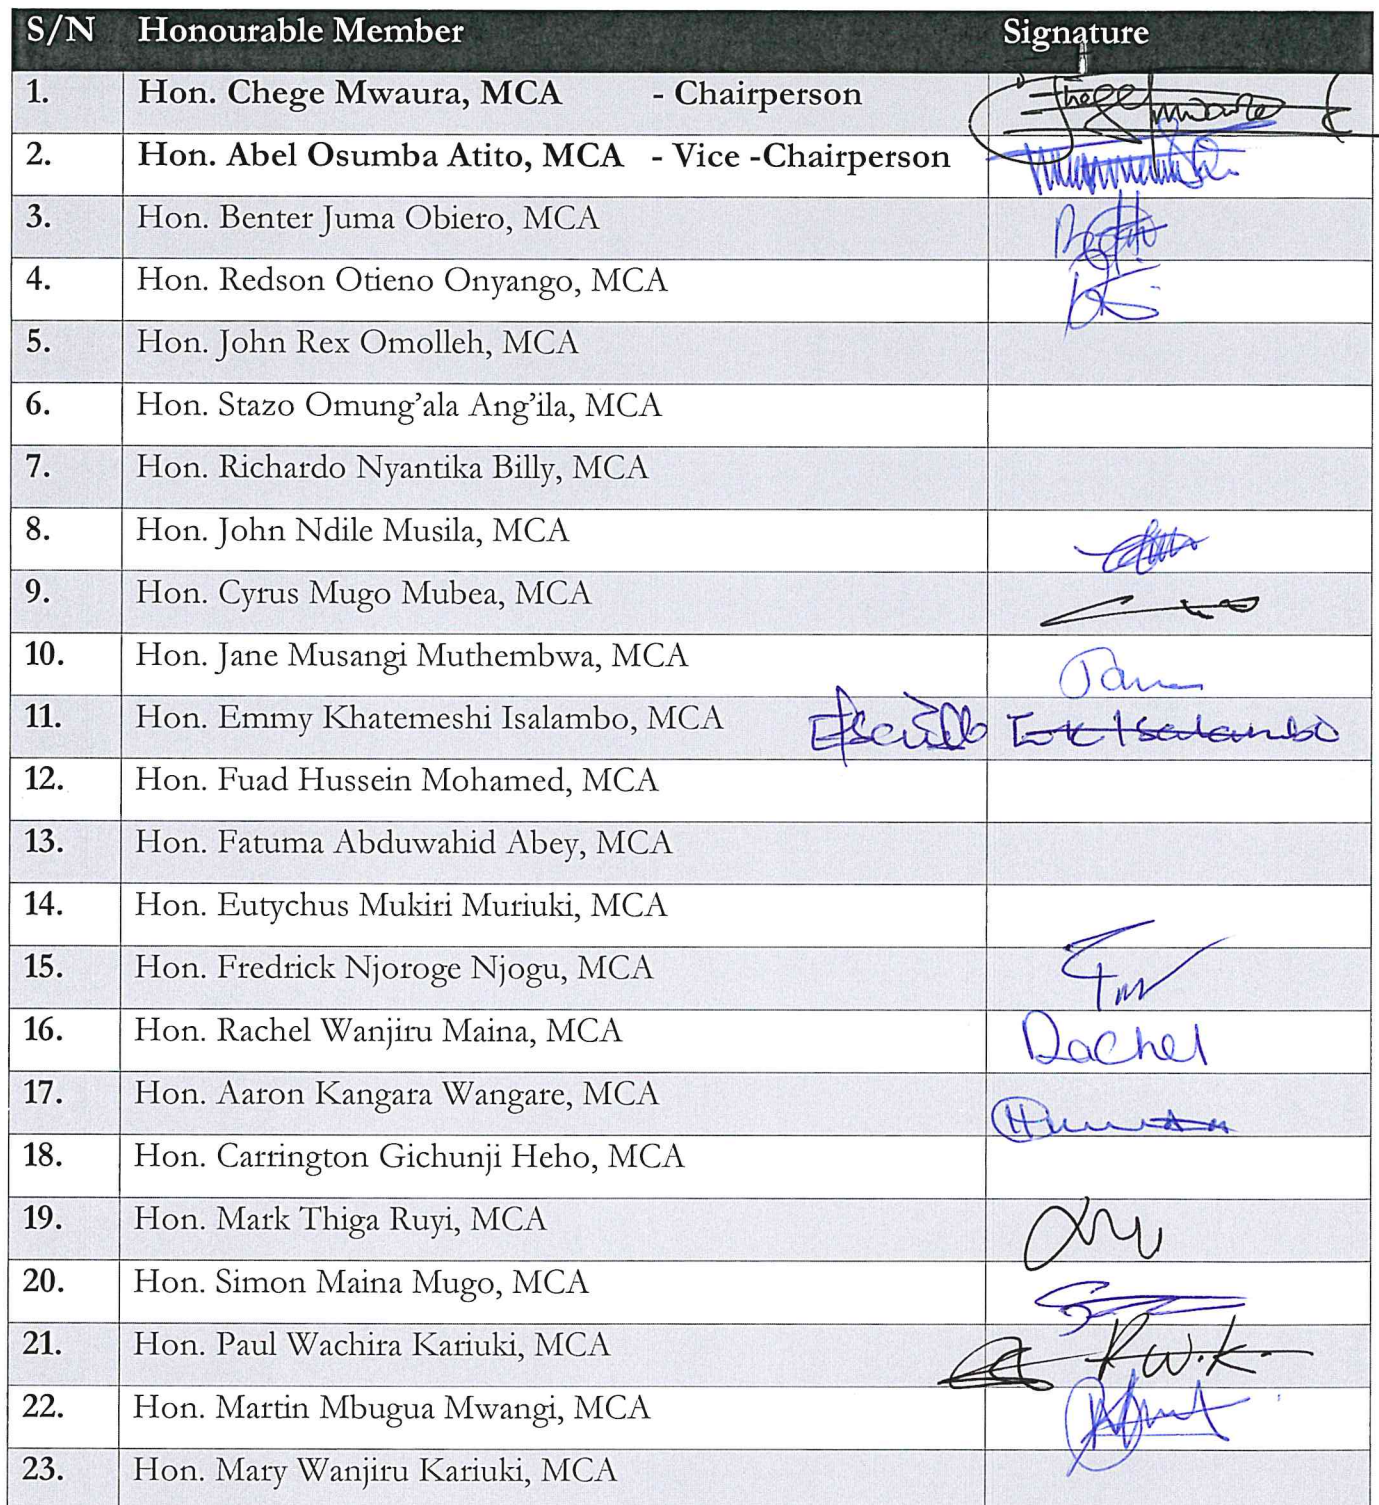 S/N Honourable Member Signature
1. Hon. Chege Mwaura, MCA - Chairperson
2. Hon. Abel Osumba Atito, MCA - Vice -Chairperson
3. Hon. Benter Juma Obiero, MCA
4. Hon. Redson Otieno Onyango, MCA
5. Hon. John Rex Omolleh, MCA
6. Hon. Stazo Omung’ala Ang’ila, MCA
7. Hon. Richardo Nyantika Billy, MCA
8. Hon. John Ndile Musila, MCA
9. Hon. Cyrus Mugo Mubea, MCA
10. Hon. Jane Musangi Muthembwa, MCA
11. Hon. Emmy Khatemeshi Isalambo, MCA
12. Hon. Fuad Hussein Mohamed, MCA
13. Hon. Fatuma Abduwahid Abey, MCA
14. Hon. Eutychus Mukiri Muriuki, MCA
15. Hon. Fredrick Njoroge Njogu, MCA
16. Hon. Rachel Wanjiru Maina, MCA Rachel
17. Hon. Aaron Kangara Wangare, MCA
18. Hon. Carrington Gichunji Heho, MCA
19. Hon. Mark Thiga Ruyi, MCA
20. Hon. Simon Maina Mugo, MCA
21. Hon. Paul Wachira Kariuki, MCA
22. Hon. Martin Mbugua Mwangi, MCA
23. Hon. Mary Wanjiru Kariuki, MCA